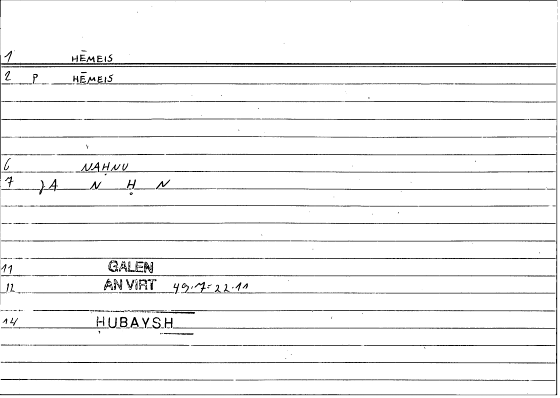 1 HĒMEIS
2 P HĒMEIS
6 NAḤNU
7 JA N Ḥ N
11 GALEN
12 AN VIRT 49.7-22.11
14 ḤUBAYSH